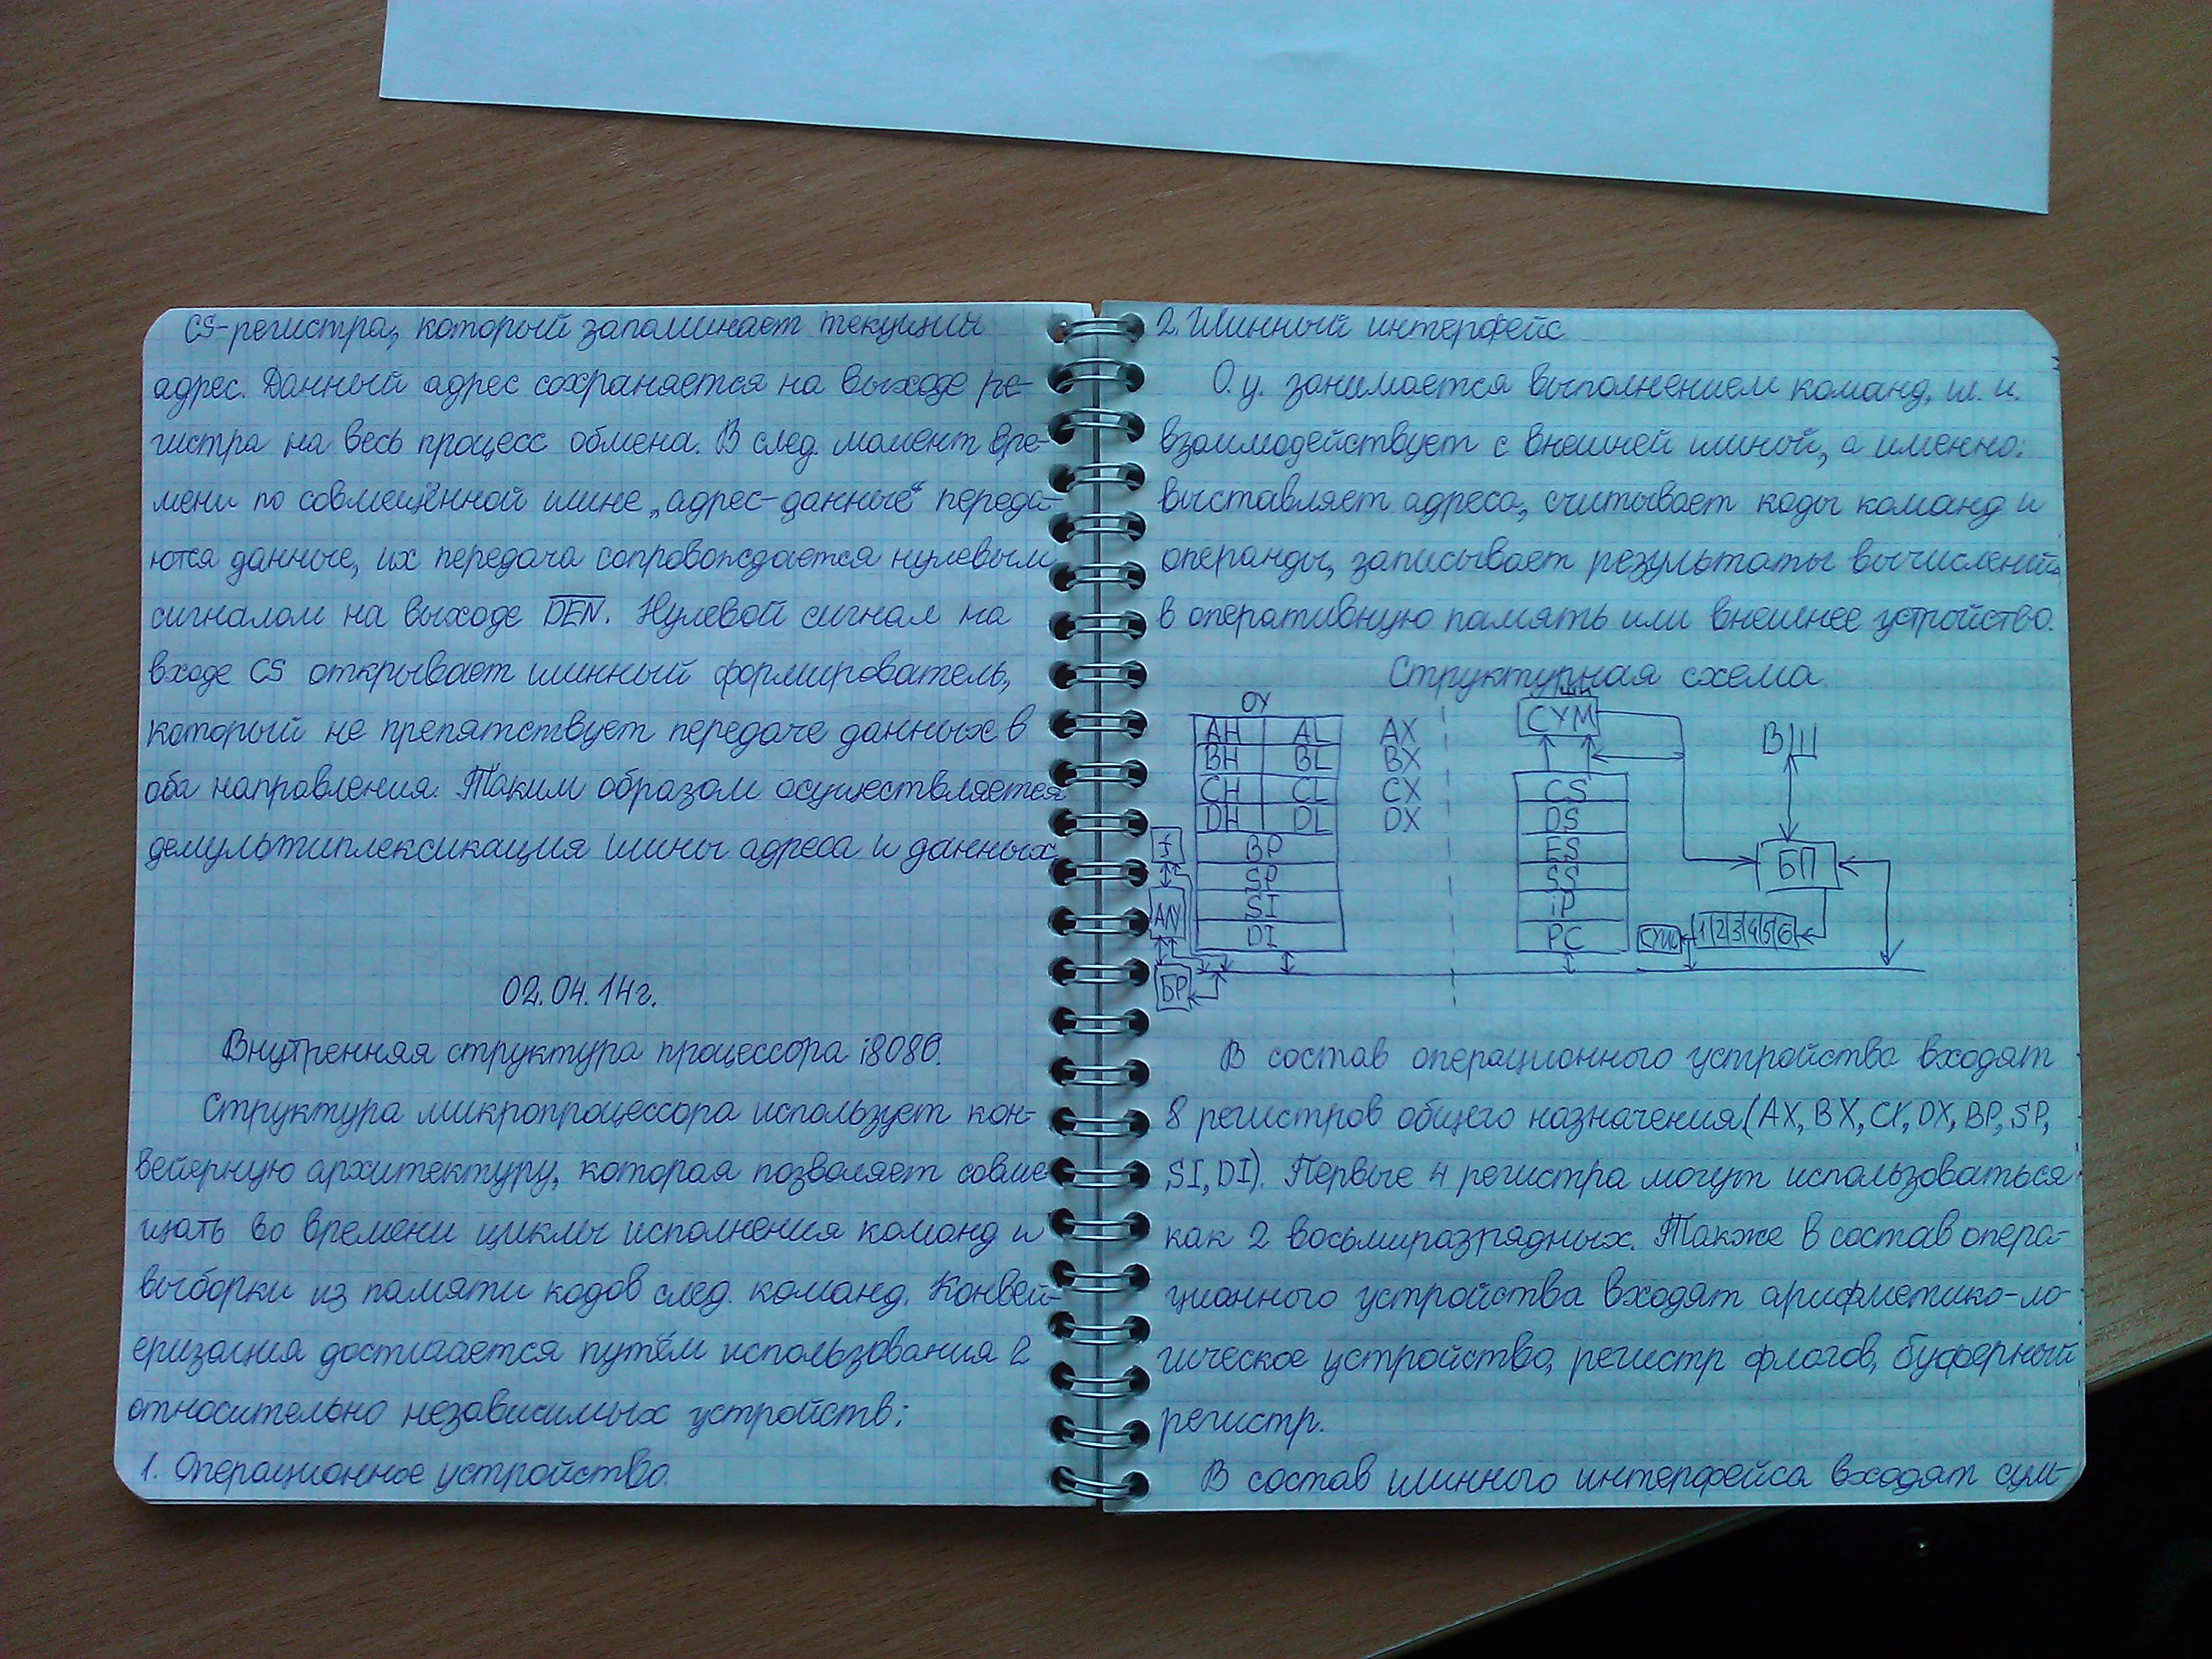 CS-регистра, который запоминает текущий
адрес. Данный адрес сохраняется на выходе ре-
гистра на весь процесс обмена. В след. момент вре-
мени по совмещённой шине „адрес-данные“ переда-
ются данные, их передача сопровождается нулевым
сигналом на выходе D̅E̅N̅. Нулевой сигнал на
входе CS открывает шинный формирователь,
который не препятствует передаче данных в
оба направления. Таким образом осуществляется
демультиплексикация шины адреса и данных.
02.04.14г.
Внутренняя структура процессора i8086.
Структура микропроцессора использует кон-
вейерную архитектуру, которая позволяет совме-
щать во времени циклы исполнения команд и
выборки из памяти кодов след. команд. Конвей-
еризация достигается путём использования 2
относительно независимых устройств:
1. Операционное устройство.
2. Шинный интерфейс
О.у. занимается выполнением команд, ш. и.
взаимодействует с внешней шиной, а именно:
выставляет адреса, считывает коды команд и
операнды, записывает результаты вычислений
в оперативную память или внешнее устройство.
Структурная схема
ОУ
ШИ
AH AL AX
BH BL BX
CH CL CX
DH DL DX
BP
SP
SI
DI
f
АЛУ
БР
СУМ
CS
DS
ES
SS
iP
PC
ВШ
БП
1 2 3 4 5 6
В состав операционного устройства входят
8 регистров общего назначения (AX, BX, CX, DX, BP, SP,
SI, DI). Первые 4 регистра могут использоваться
как 2 восьмиразрядных. Также в состав опера-
ционного устройства входят арифметико-ло-
гическое устройство, регистр флагов, буферный
регистр.
В состав шинного интерфейса входят сум-